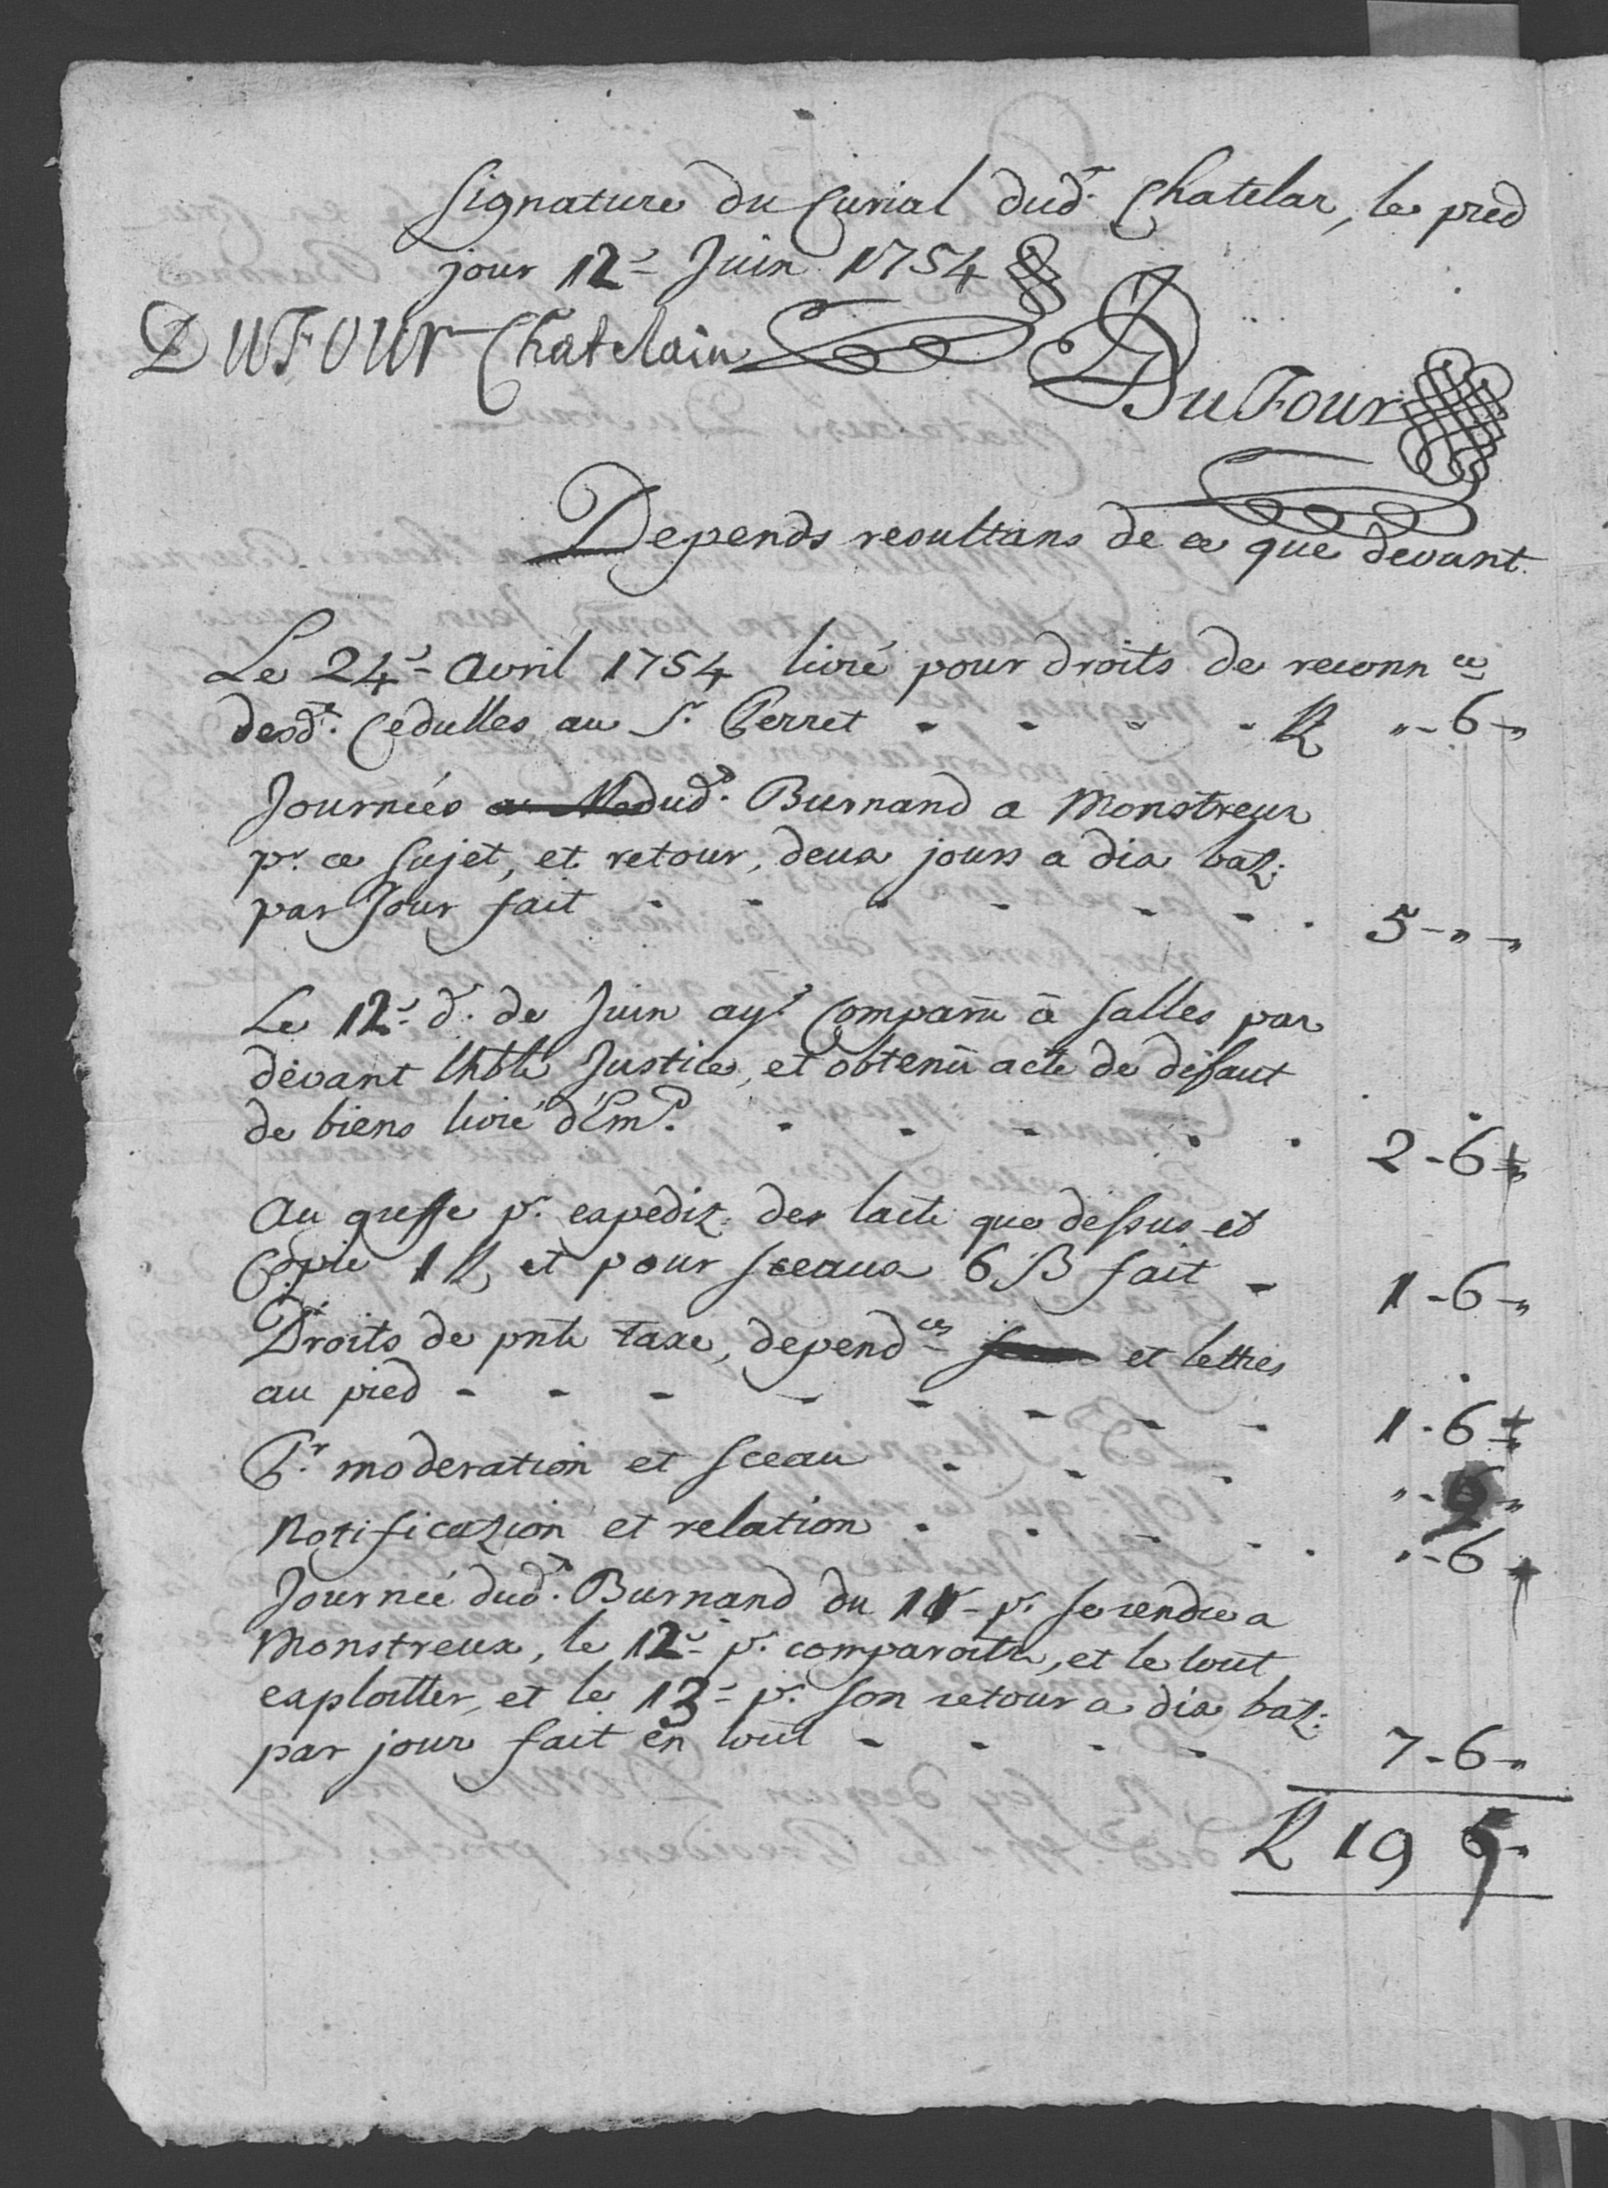 Signature du Curial dud.t Chatelar, le pred
jour 12e Juin 1754
DuFour Chatelain
DuFour
Depends resultans de ce que devant.
Le 24e Avril 1754 livré pour droits de reconnce
desd.t Cedulles au Sr. Perret - - - - L "-6-"
Journées dud.t Burnand a Monstreux
pr. ce sujet, et retour, deux jours a dix batz:
par Jour fait - - - - - - - 5-"-"
Le 12e d.t de Juin ayt Comparu à Salles par
devant lhble Justice, et obtenu acte de défaut
de biens livré d'Em.t - - - - - 2-6-"
Au greffe pr. expediz: der lacte que dessus et
Copie 1 L, et pour sceaux 6 ß fait - 1-6-"
Droits de pnte Taxe, dependces et lettres
au pied - - - - - - - - 1-6-"
Pr. moderation et Sceau - - - "- -"
Notification et relation - - - - - "-6
Journée dud.t Burnand du 11e pr. se rendre a
Monstreux, le 12e pr. comparoitre, et le tout
exploitter, et le 13e pr. son retour a dix batz:
par jour fait en tout - - - - 7-6-"
L 19